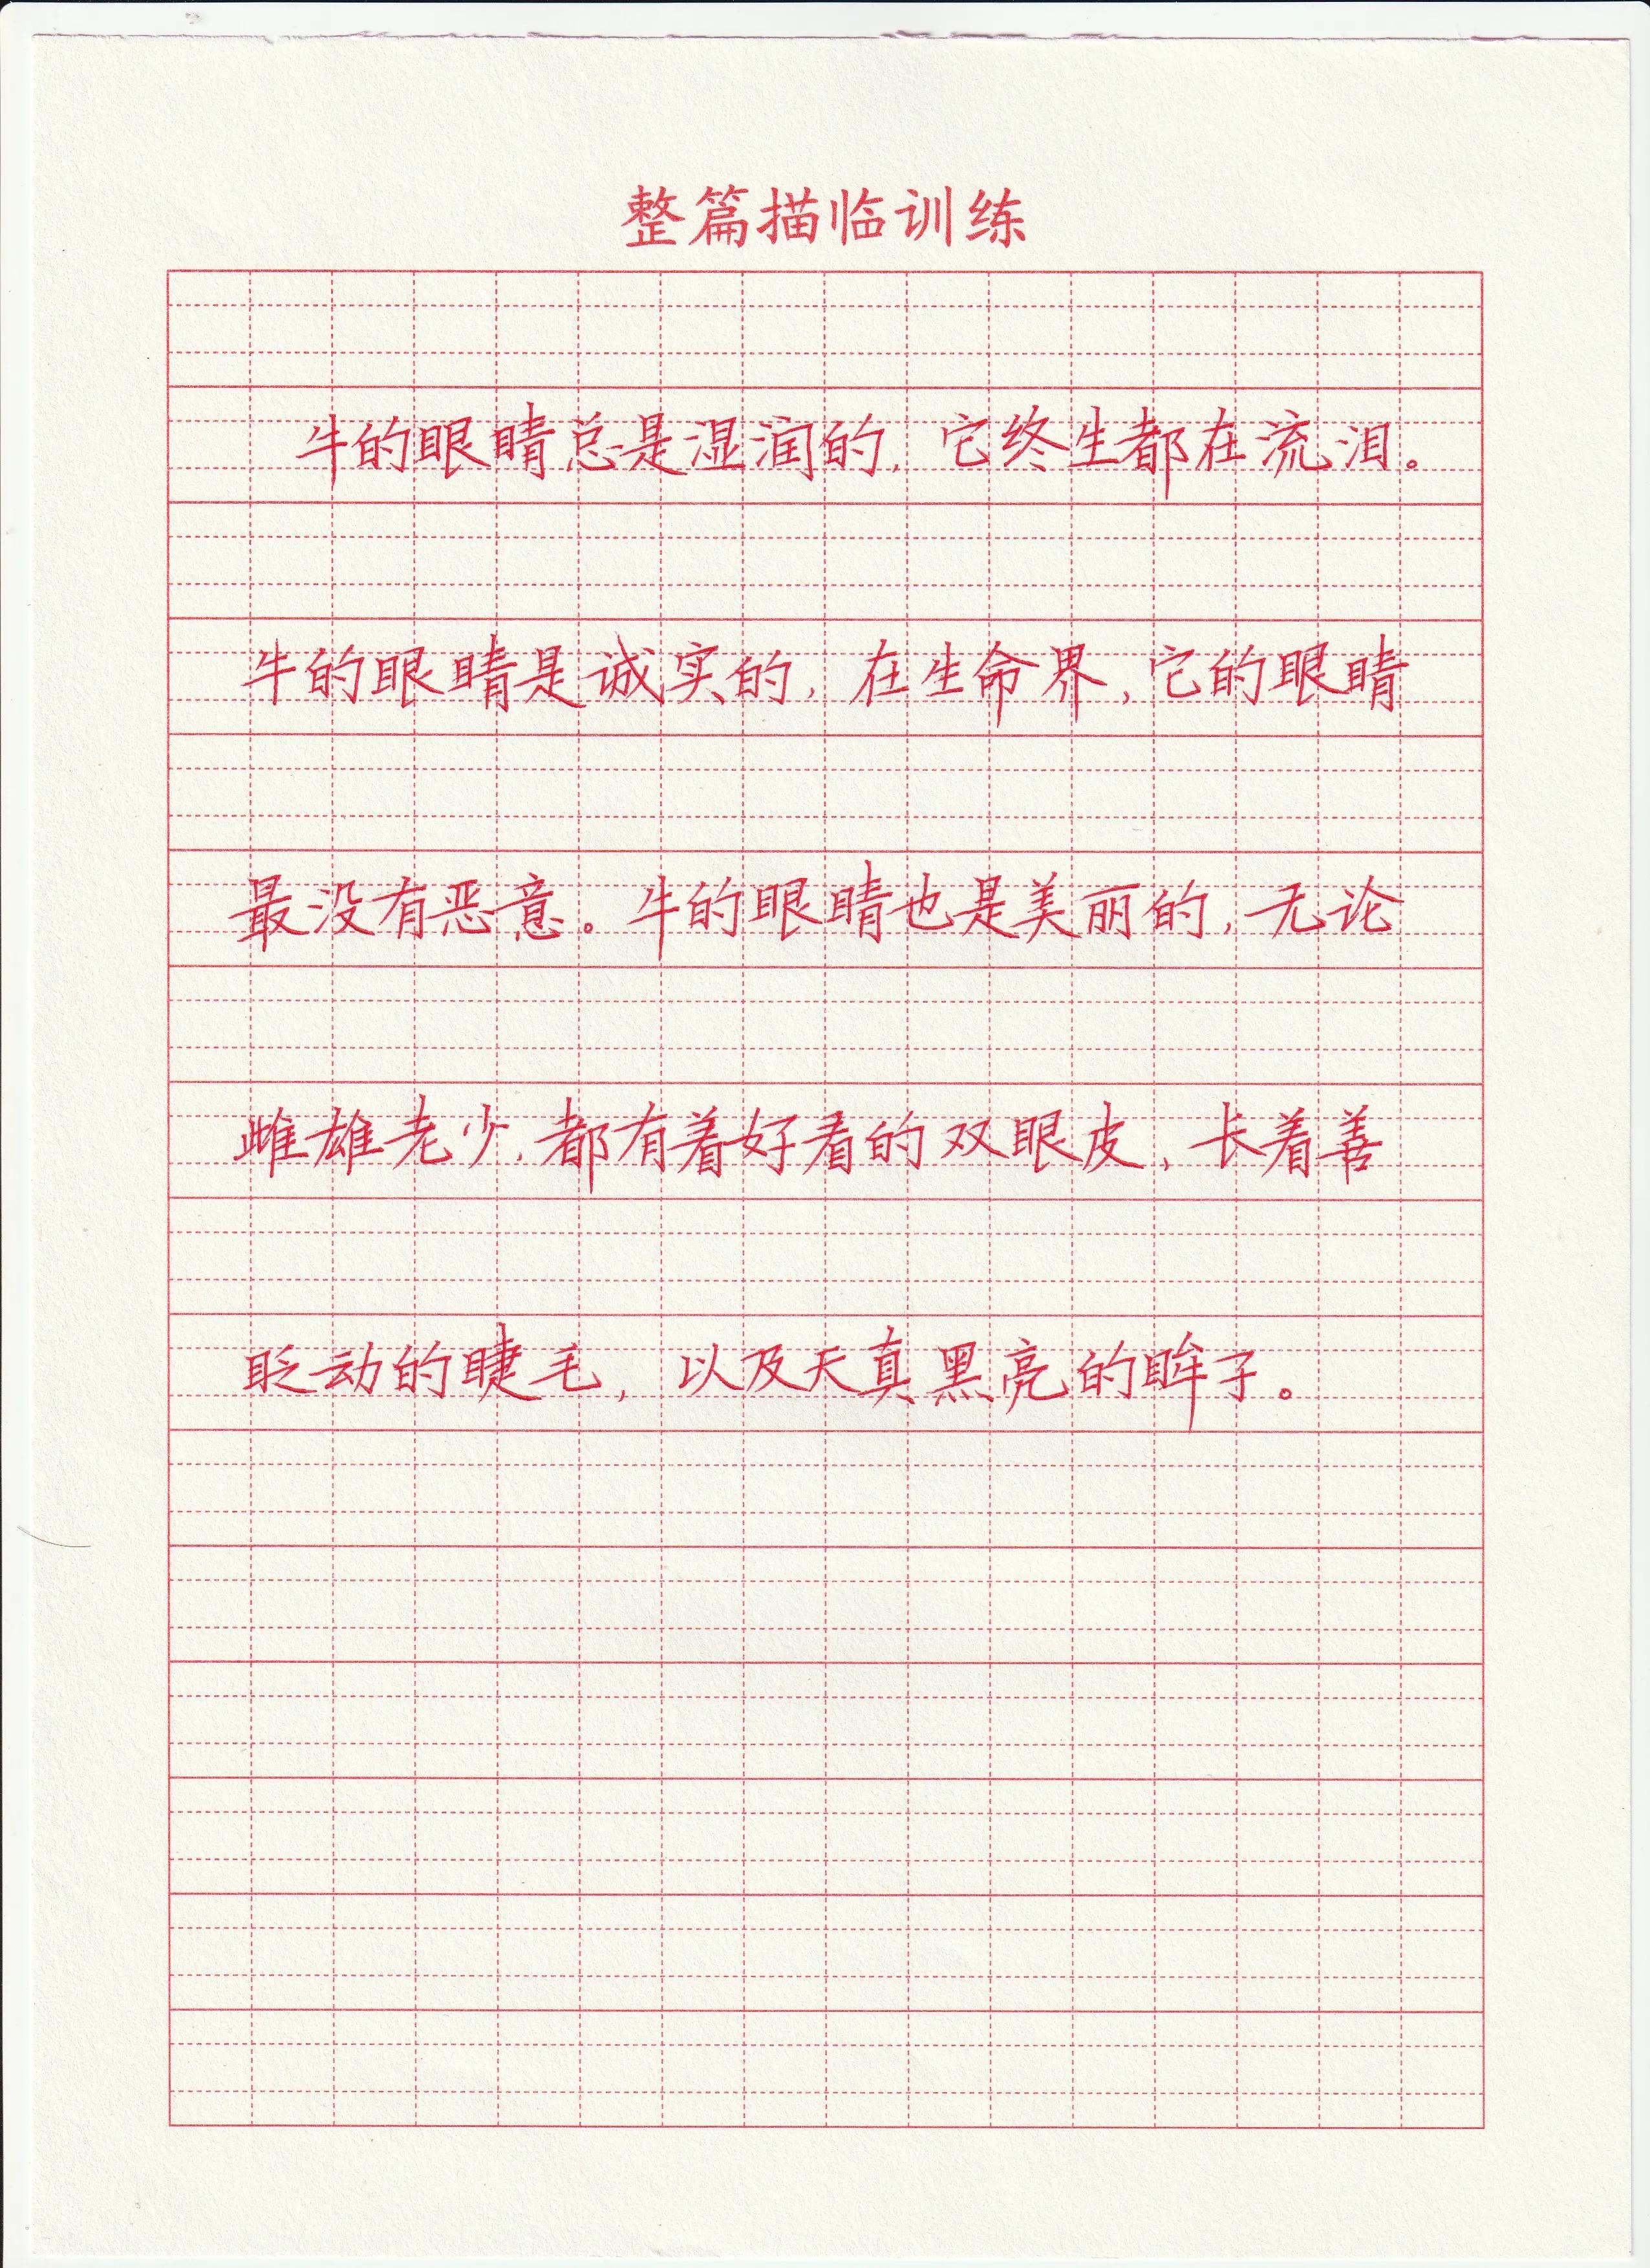 整篇描临训练
牛的眼睛总是湿润的，它终生都在流泪。
牛的眼睛是诚实的，在生命界，它的眼睛
最没有恶意。牛的眼睛也是美丽的，无论
雌雄老少，都有着好看的双眼皮，长着善
眨动的睫毛，以及天真黑亮的眸子。